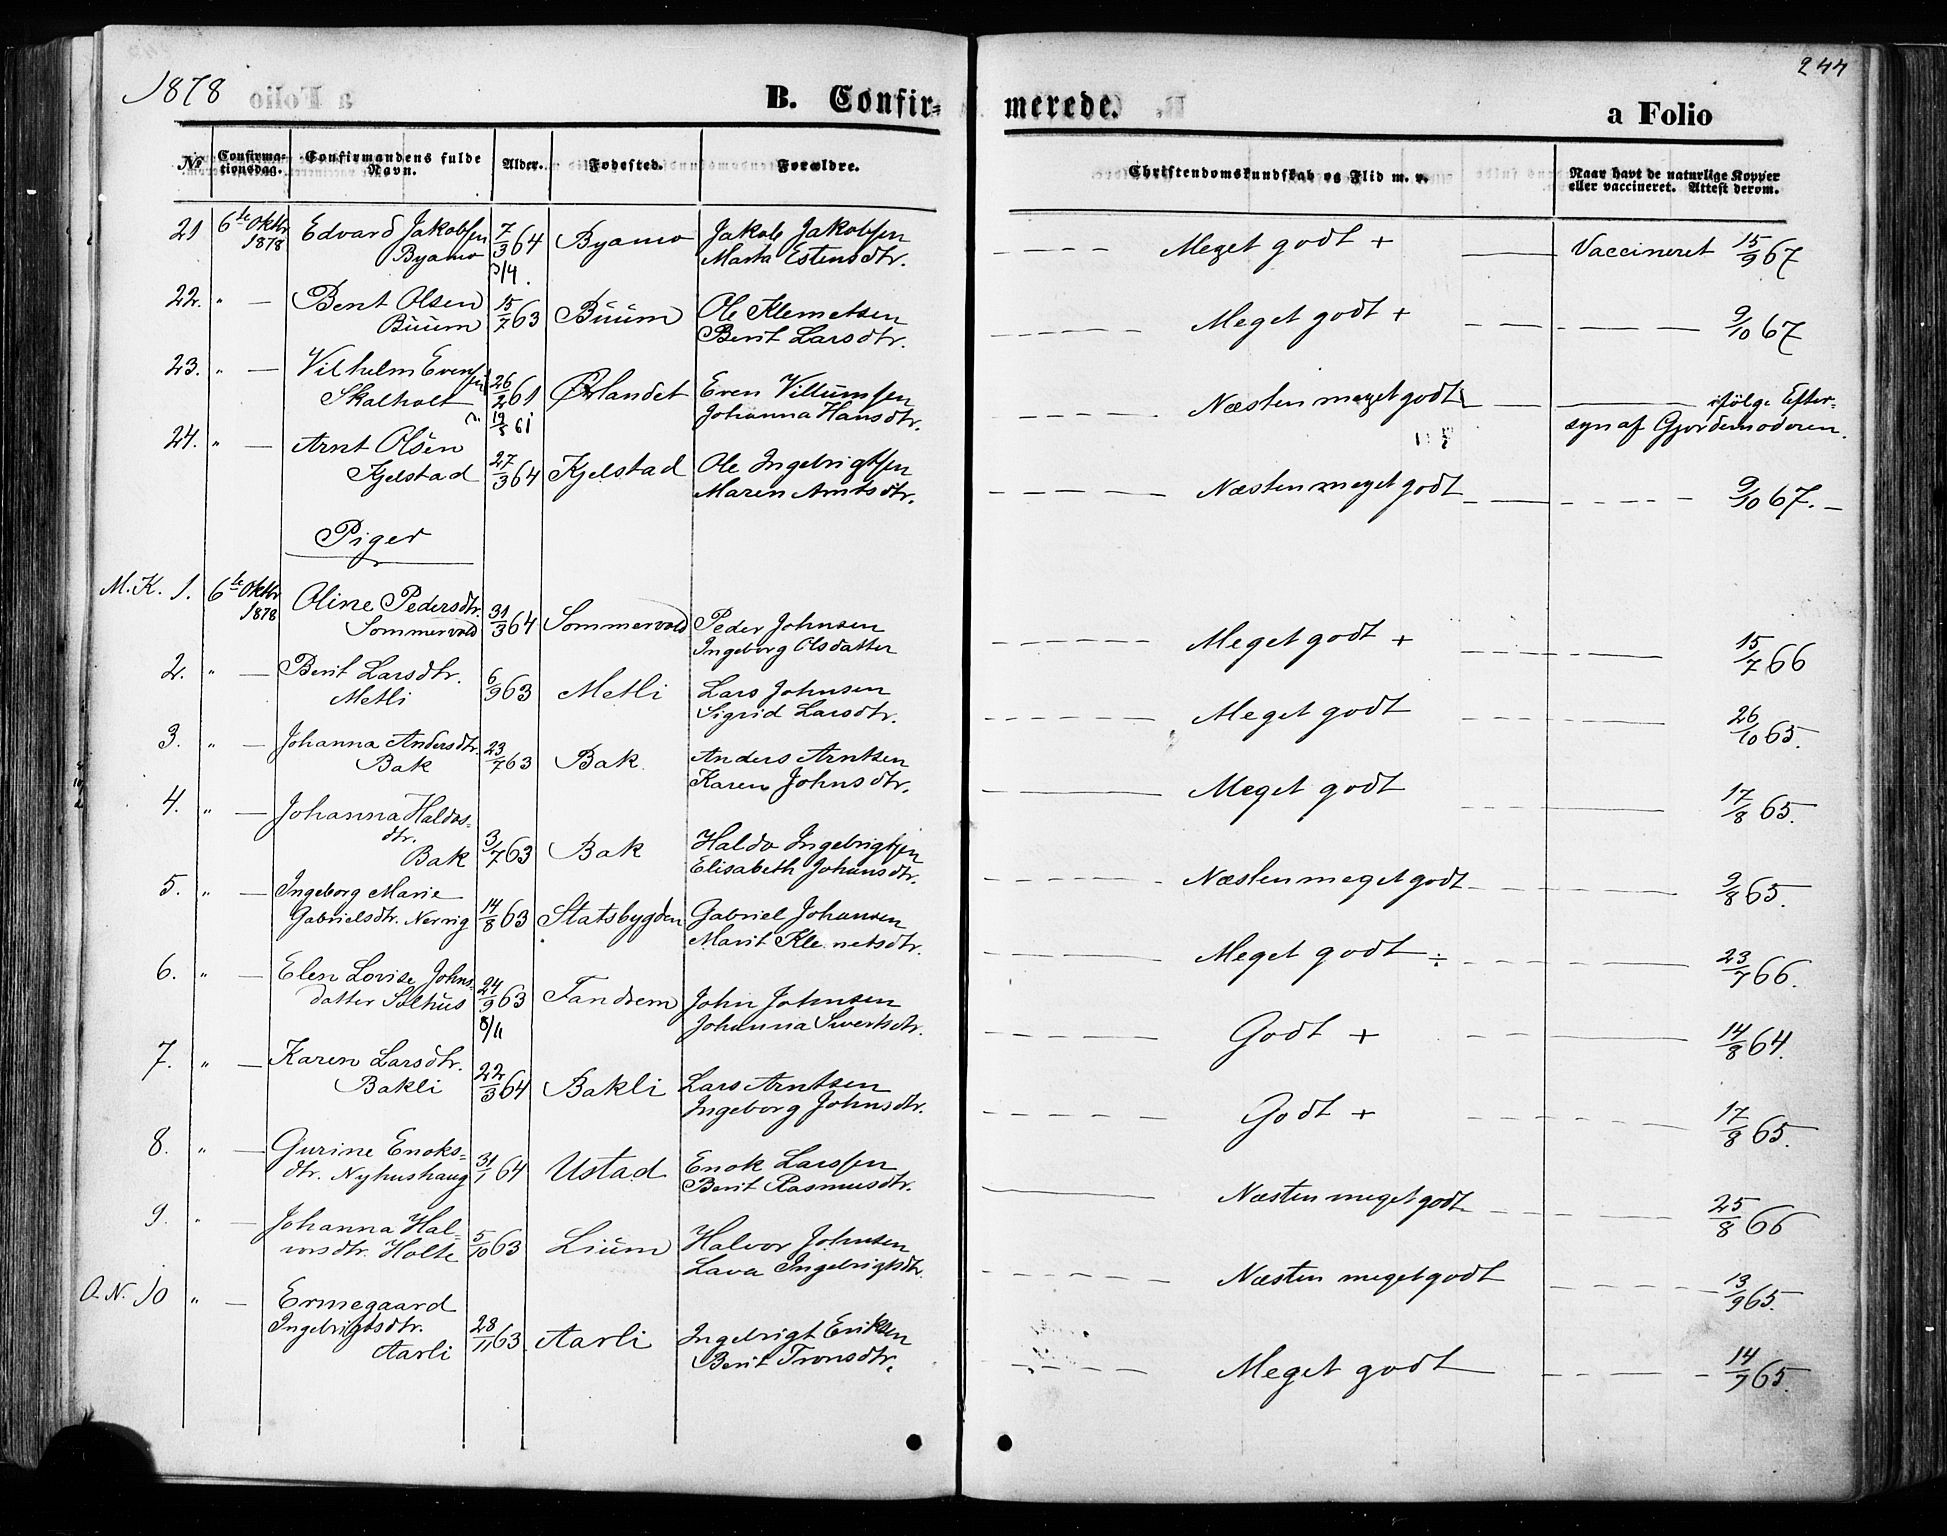 1878
B. Confir-
merede.
a Folio
244
No
Confirma-
tionsdag.
Confirmandens fulde
Navn.
Alder.
Fødested.
Forældre.
Christendomskundskab og Flid m. v.
Naar havt de naturlige Kopper
eller vaccineret. Attest derom.
21 6te Oktbr 1878 Edvard Jakobsen 7/3 64 Byamo Jakob Jakobsen — Meget godt + — Vaccineret 15/9 67
Byamo Marta Estensdtr.
22. " — Bent Olsen 15/7 63 Büüm Ole Klemetsen — Meget godt + — 9/10 67
Büüm Berit Larsdtr.
23. " — Vilhelm Evensen 26/2 61 Ørlandet Even Villumsen — Næsten meget godt — ifølge Efter-
Skalholt 19/5 61 Johanna Hansdtr. syn af Gjordemoderen.
24. " — Arnt Olsen 27/3 64 Kjelstad Ole Ingebrigtsen — Næsten meget godt — 9/10 67. —
Kjelstad Maren Arntsdtr.
Piger
M. K. 1. 6te Oktbr 1878 Oline Pedersdtr. 31/3 64 Sommervold Peder Johnsen — Meget godt + — 15/7 66
Sommervold Ingeborg Olsdatter
2. " — Berit Larsdtr. 6/9 63 Metli Lars Johnsen — Meget godt — 26/10 65.
Metli Sigrid Larsdtr.
3. " — Johanna Andersdtr. 23/7 63 Bak Anders Arntsen — Meget godt — 17/8 65.
Bak Karen Johnsdtr.
4. " — Johanna Haldos-
dtr.
Bak 3/7 63 Bak Haldo Ingebrigtsen — Næsten meget godt — 9/8 65.
Elisabeth Johansdtr.
5. " — Ingeborg Marie
Gabrielsdtr. Nervig 14/8 63 Statsbygden Gabriel Johansen — Meget godt ÷ — 23/7 66.
Marit Klemetsdtr.
6. " — Elen Lovise Johns-
datter Solhus 24/9 63 Fandrem John Johnsen — Godt + — 14/8 64.
8/11 Johanna Sivertsdtr.
7. " — Karen Larsdtr. 22/3 64 Bakli Lars Arntsen — Godt + — 17/8 65.
Bakli Ingeborg Johnsdtr.
8. " — Gurine Enoks-
dtr. Nyhushaug 31/1 64 Ustad Enok Larssen — Næsten meget godt — 25/8 66
Berit Rasmusdtr.
9. " — Johanna Hal-
vorsdtr. Holte 5/10 63 Lium Halvor Johnsen — Næsten meget godt — 13/9 65.
Lava Ingebrigtsdtr.
O. N. 10 " — Ermegaard
Ingebrigtsdtr.
Aarli 28/11 63 Aarli Ingebrigt Eriksen — Meget godt — 14/9 65.
Berit Tronsdtr.